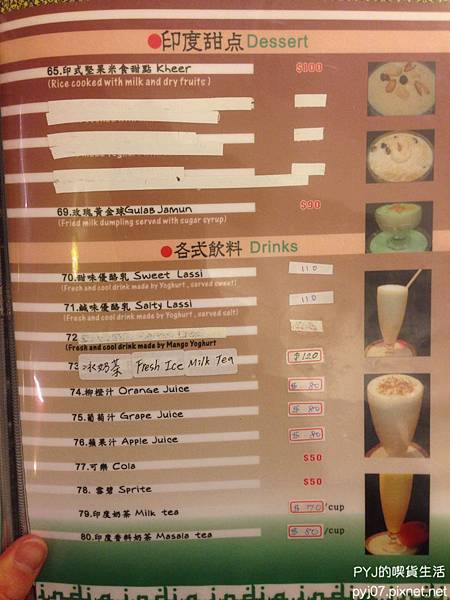 印度甜点 Dessert
65.印式堅果米食甜點 Kheer $100
(Rice cooked with milk and dry fruits)
69.玫瑰黃金球Gulab Jamun $90
(Fried milk dumpling served with sugar syrup)
各式飲料 Drinks
70.甜味優酪乳 Sweet Lassi 110
(Fresh and cool drink made by Yoghurt , sarved sweet)
71.鹹味優酪乳 Salty Lassi 110
(Fresh and cool drink made by Yoghurt , sarved salt)
72
(Fresh and cool drink made by Mango Yoghurt
73 冰奶茶 Fresh Ice Milk Tea $120
74.柳橙汁 Orange Juice $ 80
75.葡萄汁 Grape Juice $ 80
76.蘋果汁 Apple Juice $ 80
77.可樂 Cola $50
78. 雪碧 Sprite $50
79.印度奶茶 Milk tea $ 70/cup
80.印度香料奶茶 Masala tea $ 80/cup
india india india india
PYJ的喫貨生活
pyj07.pixnet.net